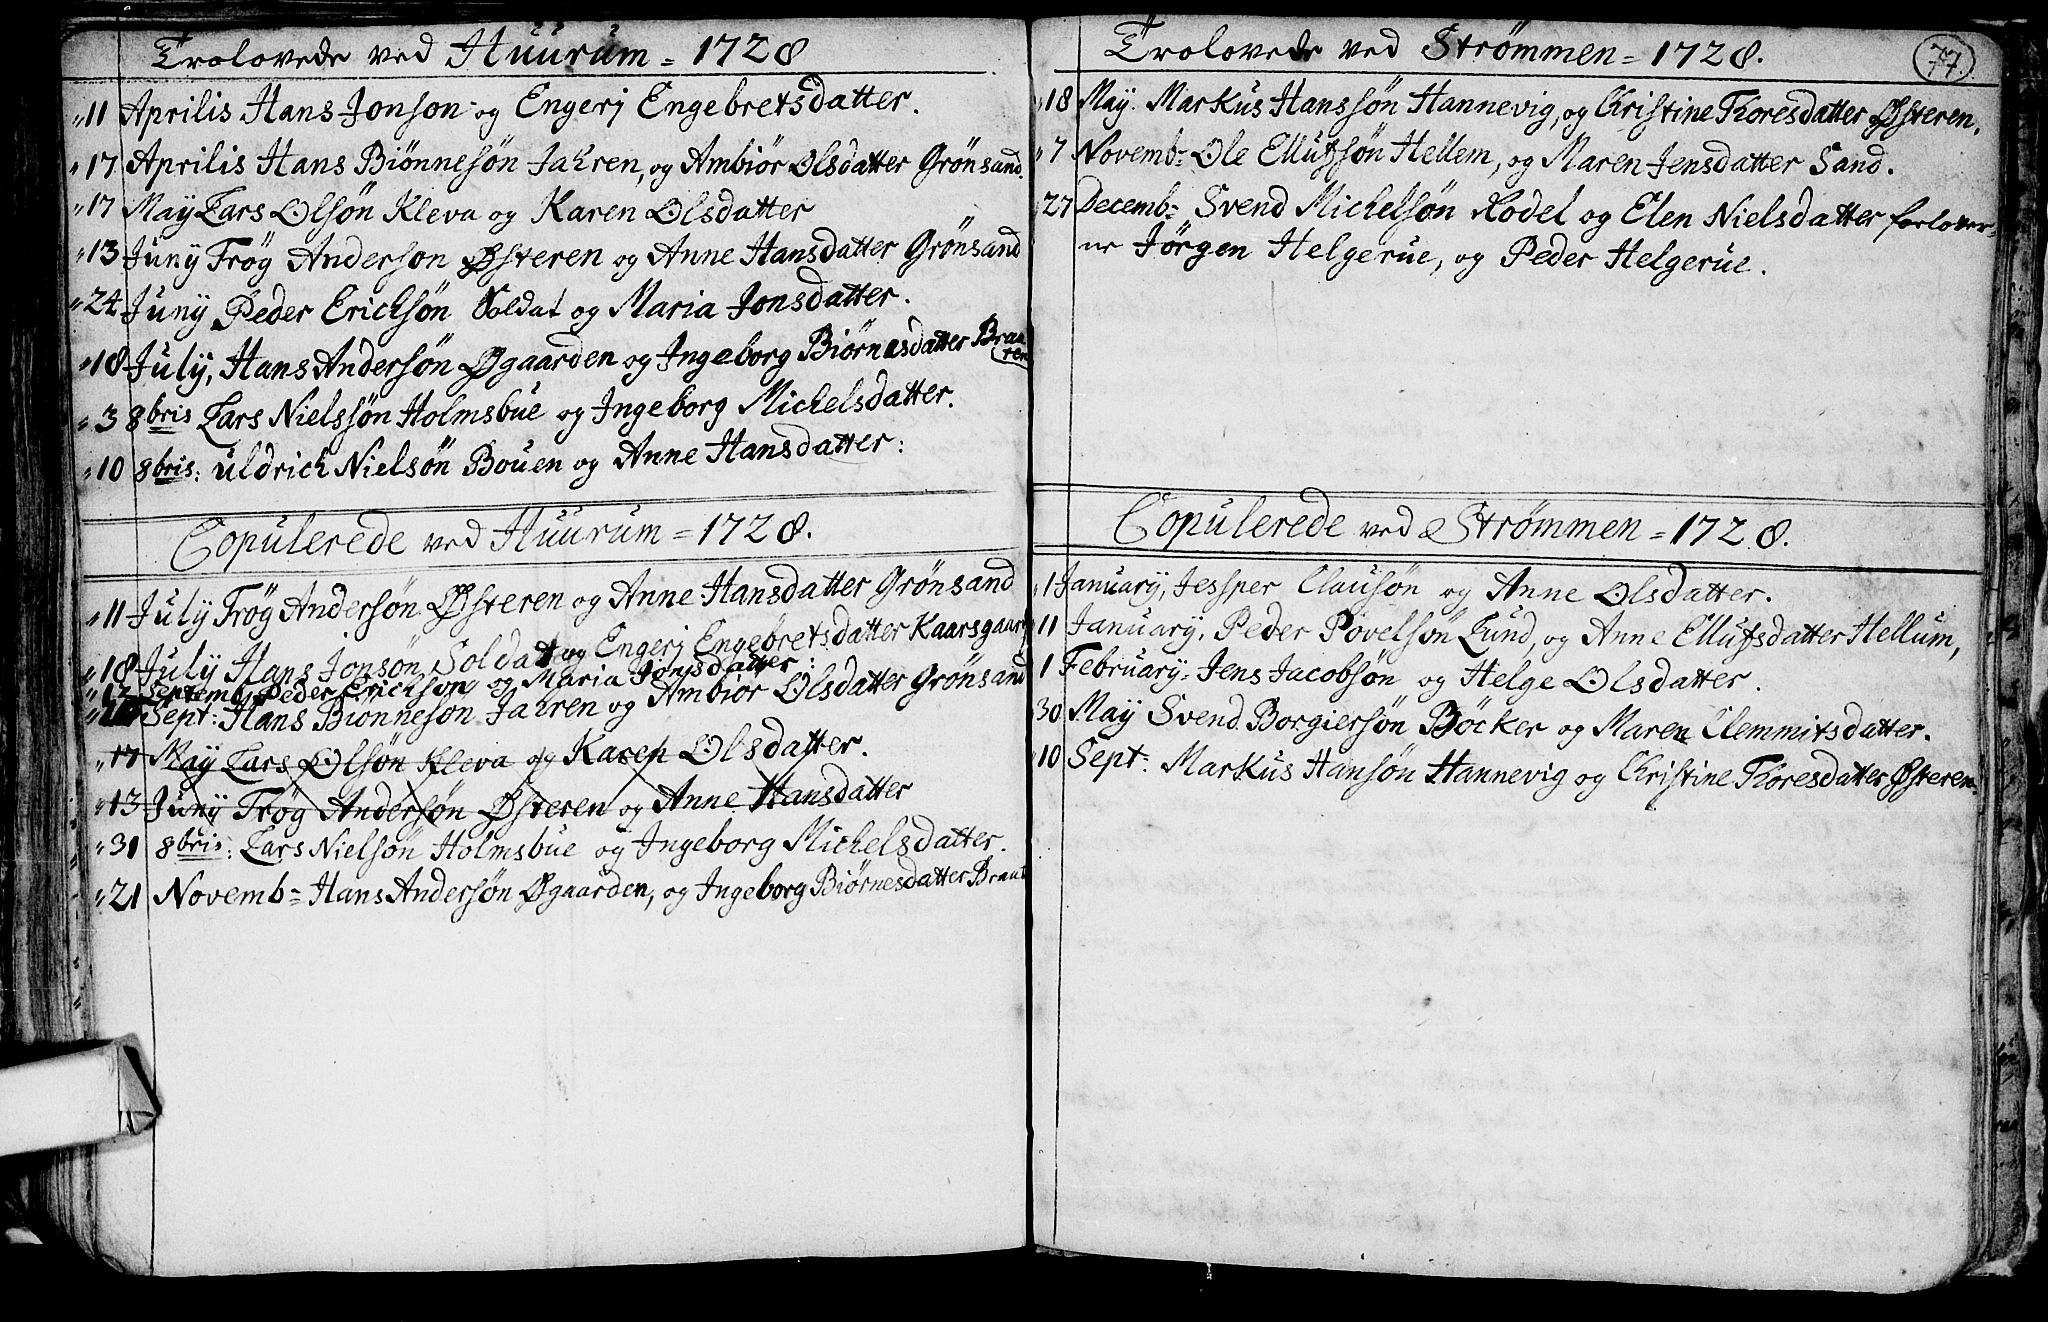 Trolovede ved Huurum = 1728
"11 Aprilis Hans Jonson og Engerj Engebretsdatter.
"17 Aprilis Hans Biönnesön Jahren, og Ambiör Olsdatter Grönsand.
"17 Maÿ Lars Olsön Kleva og Karen Olsdatter
"13 Junÿ Trög Anderson Østeren og Anne Hansdatter Grönsand
"24 Junÿ Peder Erichsön Soldat og Maria Jonsdatter.
"18 Julÿ, Hans Andersön Øgaarden og Ingeborg Biörnesdatter Braa
ren
"3 8bris Lars Nielssön Holmsbue og Ingeborg Michelsdatter.
"10 8bris: Uldrich Nielsön Bouen og Anne Hansdatter:
Copulerede ved Huurum = 1728.
"11 Julÿ Trög Andersön Østeren og Anne Hansdatter Grönsand
"18 Julÿ Hans Jonsön Soldat og Engerj Engebretsdatter Kaarsgaard
Septemb Peder Erichsön og Maria Jonsdatter:
Sept: Hans Biönneson Jahren og Ambiör Olsdatter Grönsand
"17 Maÿ Lars Olsön Kleva og Karen Olsdatter.
"13 Junÿ Trög Andersön Østeren og Anne Hansdatter
"31 8bris: Lars Nielsön Holmsbue og Ingeborg Michelsdatter.
"21 Novemb= Hans Andersön Øgaarden, og Ingeborg Biörnesdatter Braut
Trolovede ved Strömmen = 1728.
77.
"18 Maÿ. Markus Hanssön Hannevig, og Christine Thoresdatter Østeren.
"7 Novemb= Ole Ellufssön Hellem, og Maren Jensdatter Sand.
27 Decemb= Svend Michelsön Rodel og Elen Nielsdatter forlover=
ne Jörgen Helgerue, og Peder Helgerue.
Copulerede ved Strömmen = 1728.
"1 Januarÿ, Jessper Clausön og Anne Olsdatter.
"11 Januarÿ, Peder Povelsön Lund, og Anne Ellufsdatter Hellum,
"1 Februarÿ= Jens Jacobsön og Helge Olsdatter.
30 Maÿ Svend Borgiersön Böcker og Maren Clemmitsdatter.
"10 Sept= Markus Hansön Hannevig og Christine Thoresdatter Østeren